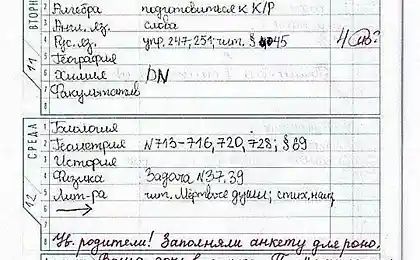 ВТОРН
Алгебра подготовиться к К/Р
3 Англ. яз. слова
4 Рус. яз. упр. 247, 251; чит. § 45
5 География
6 Химия DN
7 Факультатив
11
СРЕДА
1 Биология
2 Геометрия N713-716, 720, 728; § 69
3 История
4 Физика Задача N37, 39
5 Лит-ра чит. Мёртвые души; стих, наиз.
6
7
12
8 Ув. родители! Заполняли анкету для роно.